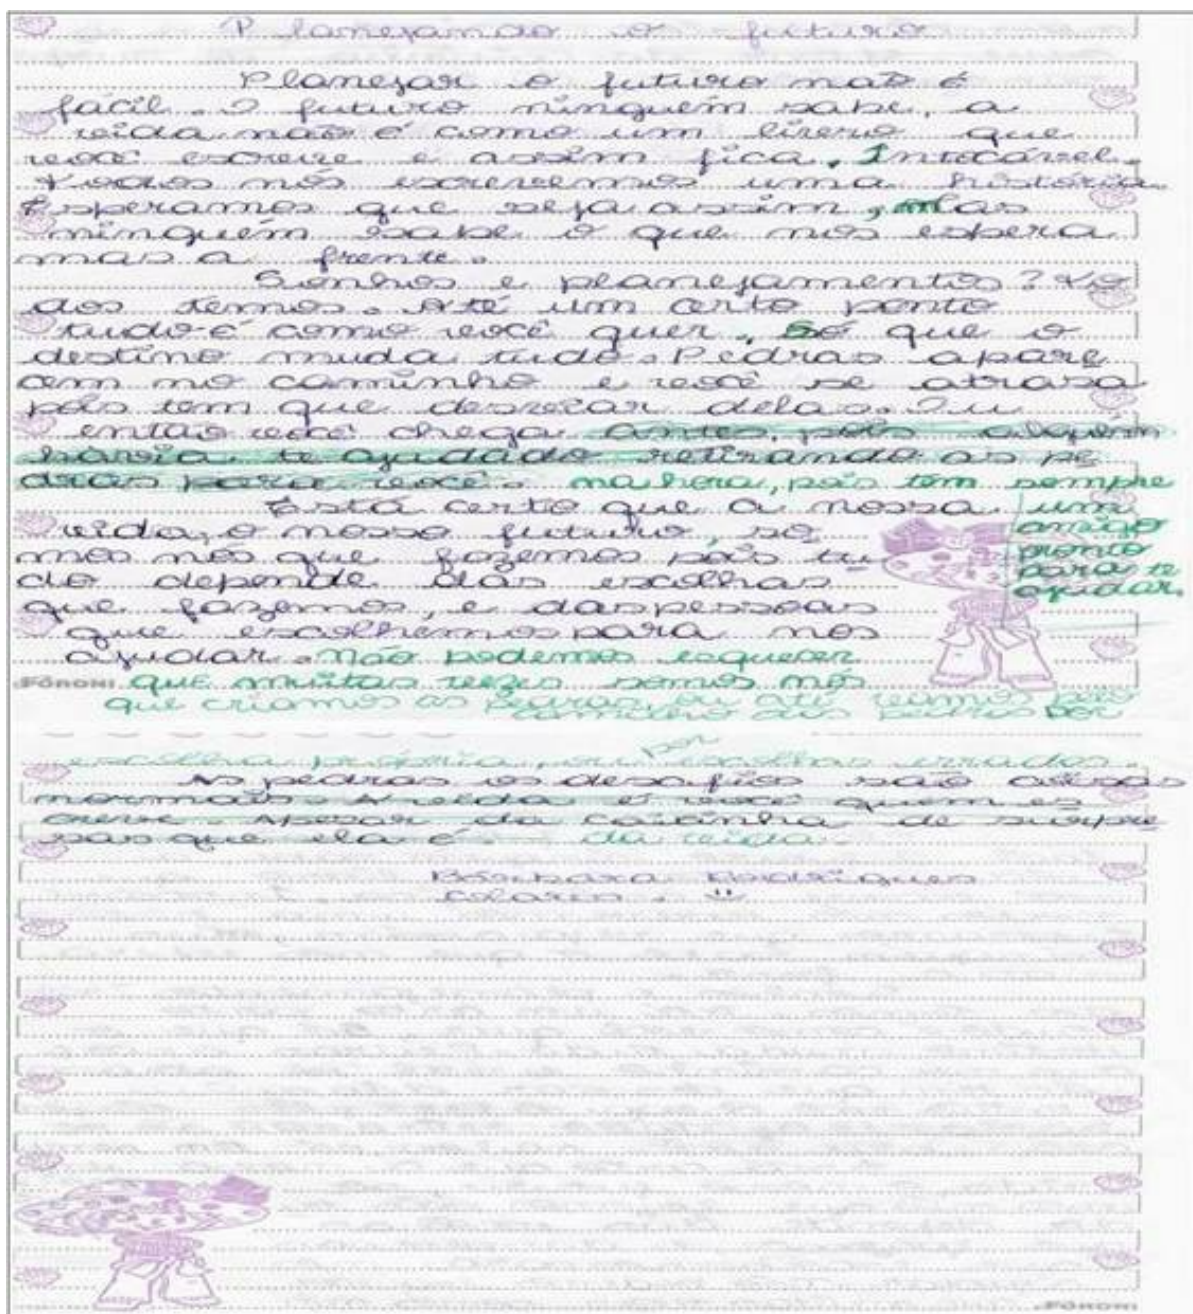 Planejando o futuro
Planejar o futuro não é
fácil. O futuro ninguém sabe, a
vida não é como um livro que
você escreve e assim fica. Intocável.
Todos nós escrevemos uma história.
Esperamos que seja assim, mas
ninguém sabe o que nos espera
mas a frente.
Sonhos e planejamentos? To
dos temos. Até um certo ponto
tudo é como você quer. Só que o
destino muda tudo. Pedras apare
cem no caminho e você se atrasa
pois tem que desviar delas. Ou
então você chega antes, pois alguém
havia te ajudado retirando as pe
dras para você. na hora, pois tem sempre
um
amigo
pronto
para te
ajudar.
Está certo que a nossa
vida, o nosso futuro, so
mos nós que fazemos pois tu
do depende das escolhas
que fazemos, e das pessoas
que escolhemos para nos
ajudar. Não podemos esquecer
FORONI que muitas vezes somos nós
que criamos as pedras, ou até vamos pelo
caminho das pedras por
escolha própria, ou por escolhas erradas.
As pedras os desafios são coisas
normais. A vida é você quem es
creve. Apesar da caixinha de surpre
sas que ela é. da vida.
Bárbara Rodrigues
FORONI